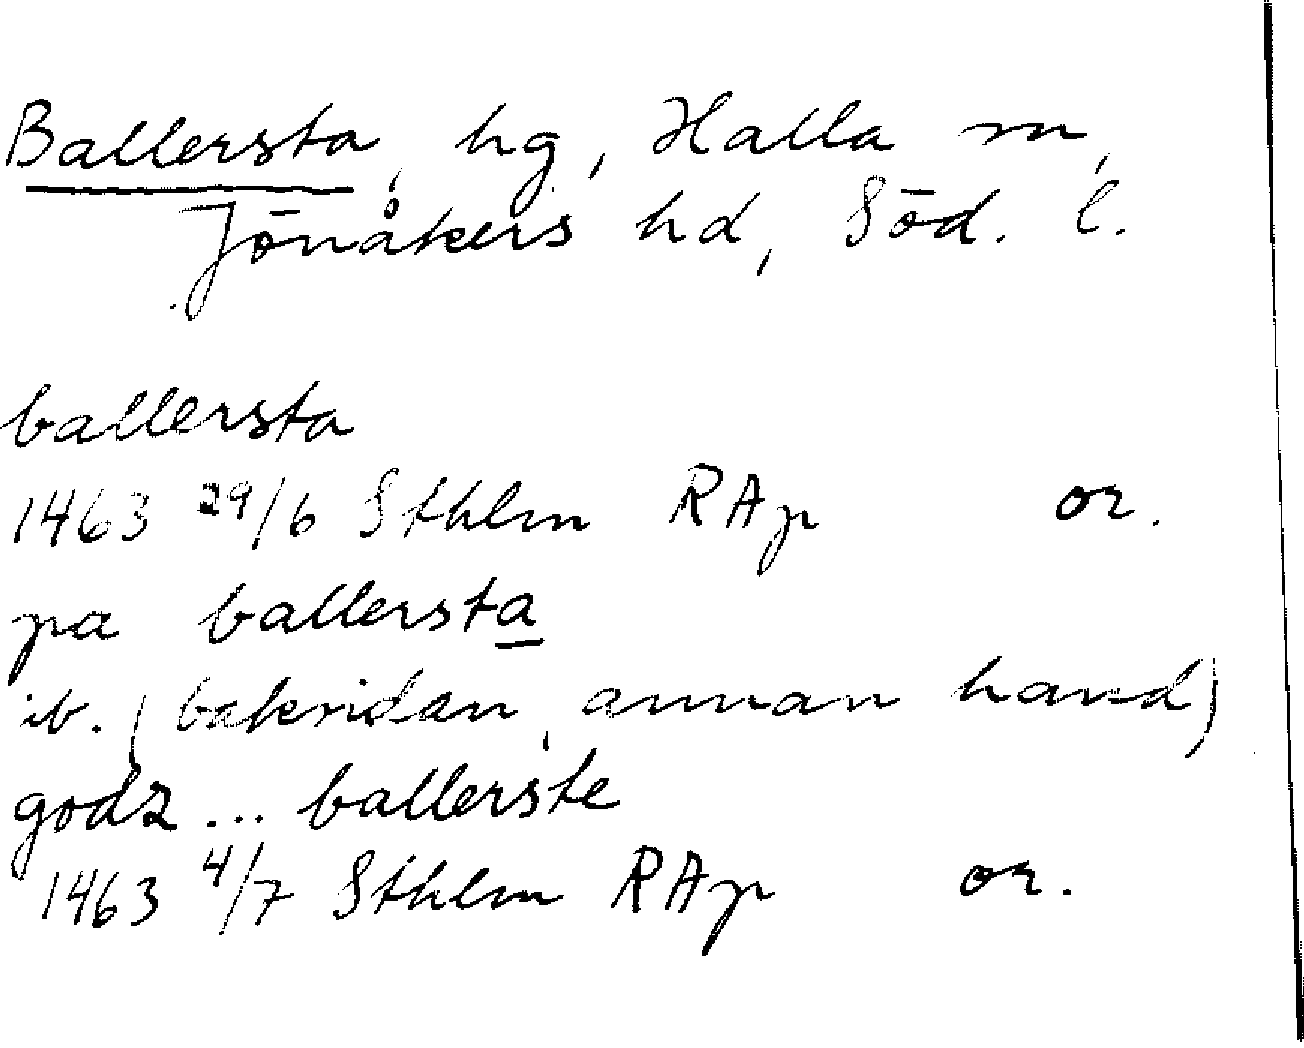 Ballersta, hg, Halla sn,
Jönåkers hd, Söd. l.
ballersta
1463 29/6 Sthlm RAp or.
pa ballersta
ib. (baksidan, annan hand)
godz ... ballerste
1463 4/7 Sthlm RAp or.